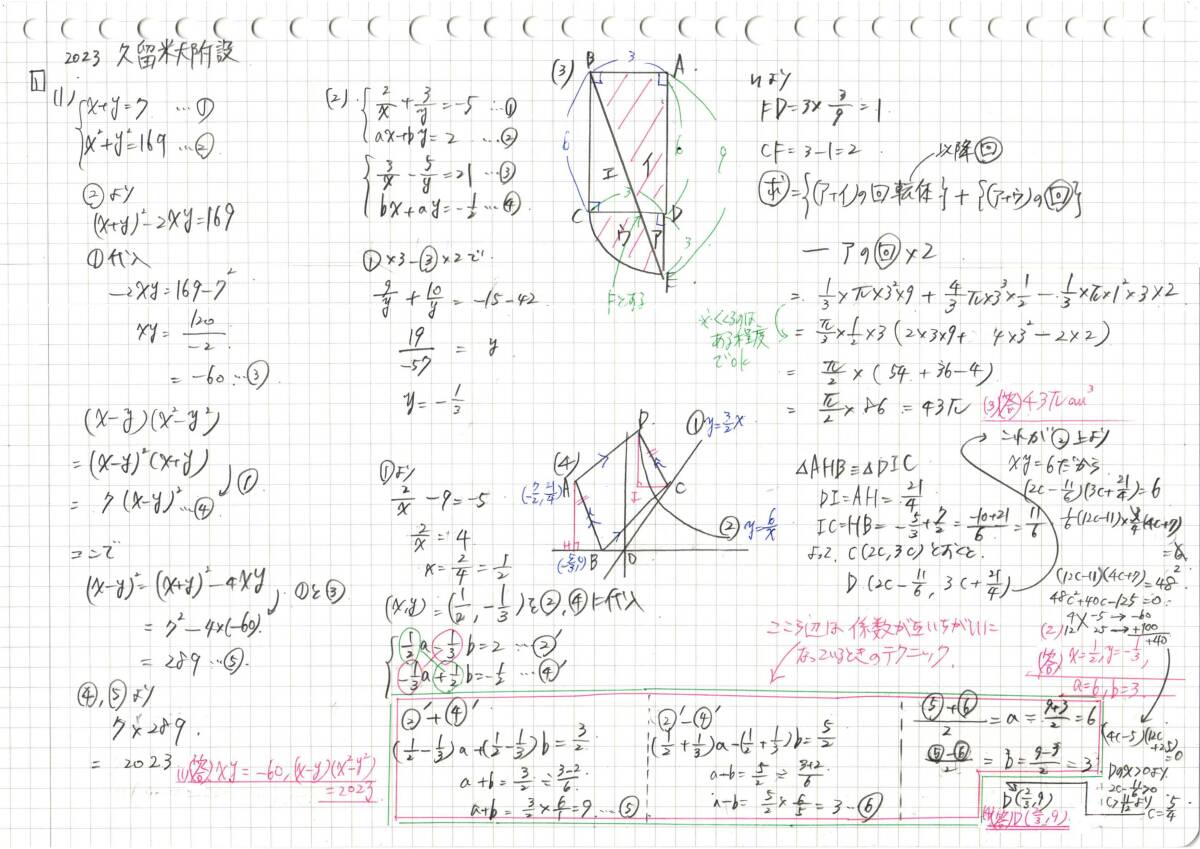 2023 久留米大附設
1
(1)
x+y=7 …①
x²+y²=169 …②
②より
(x+y)²-2xy=169
①代入
-2xy=169-7²
xy=120/-2
=-60…③
(x-y)(x²-y²)
=(x-y)²(x+y)
①
=7(x-y)²…④
ここで
(x-y)²=(x+y)²-4xy
①と③
=7²-4×(-60)
=289…⑤
④,⑤より
7×289
=2023
(1)答 xy=-60,(x-y)(x²-y²)
=2023
(2)
2/x+3/y=-5…①
ax+by=2…②
3/x-5/y=21…③
bx+ay=-1/2…④
①×3-③×2で
9/y+10/y=-15-42
19/-57=y
y=-1/3
①より
2/x-9=-5
2/x=4
x=2/4=1/2
(x,y)=(1/2,-1/3)を②,④に代入
1/2a-1/3b=2…②'
-1/3a+1/2b=-1/2…④'
ここら辺は係数が互いちがいに
なっているときのテクニック.
②'+④'
(1/2-1/3)a+(1/2-1/3)b=3/2
a+b=3/2÷3-2/6
a+b=3/2×6/1=9…⑤
②'-④'
(1/2+1/3)a-(1/2+1/3)b=5/2
a-b=5/2÷3+2/6
a-b=5/2×6/5=3…⑥
⑤+⑥/2=a=9+3/2=6
⑤-⑥/2=b=9-3/2=3
(2)
答 x=1/2,y=-1/3,
a=6,b=3
(3)
B 3 A
6 6 9
エ イ
C 3 D
ウ ア 3
E
Fとする
※くくるのは、
ある程度
でOK
nより
FD=3×3/9=1
CF=3-1=2
以降回
求={(ア+イ)の回転体}+{(ア+ウ)の回}
-アの回×2
=1/3×π×3²×9+4/3π×3³×1/2-1/3×π×1²×3×2
=π/3×1/2×3(2×3×9+4×3²-2×2)
=π/2×(54+36-4)
=π/2×86=43π
(3)答 43πcm³
(4)
D
①y=3/2x
A
(-7/2,21/4)
I
C
②y=6/x
H
(-5/3,0) B O
△AHB≡△DIC
DI=AH=21/4
IC=HB=-5/3+7/2=-10+21/6=11/6
よって、C(2c,3c)とおくと、
D(2c-11/6,3c+21/4)
これが②上より
xy=6だから
(2c-11/6)(3c+21/4)=6
1/6(12c-11)×3/4(4c+7)
=6
(12c-11)(4c+7)=48
48c²+40c-125=0
4 -5→-60
12 25→+100
+40
(4c-5)(12c
+25)
=0
Dのx>0より
2c-11/6>0
c>11/12より
c=5/4
D(2/3,9)
答D(2/3,9)